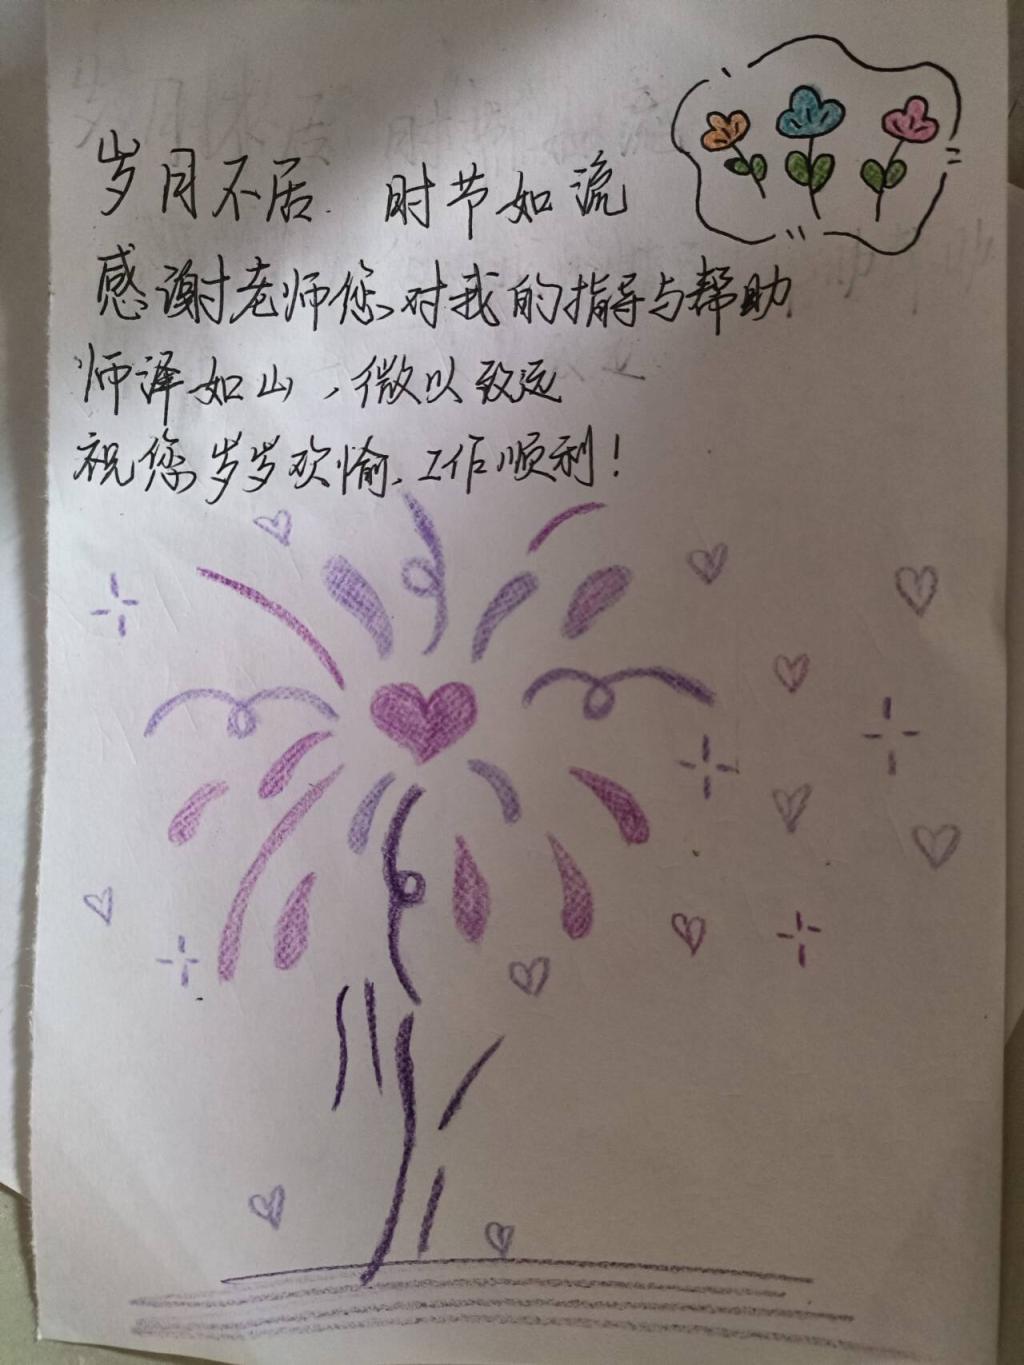 岁月不居 时节如流
感谢老师您对我的指导与帮助
师泽如山，微以致远
祝您岁岁欢愉、工作顺利！